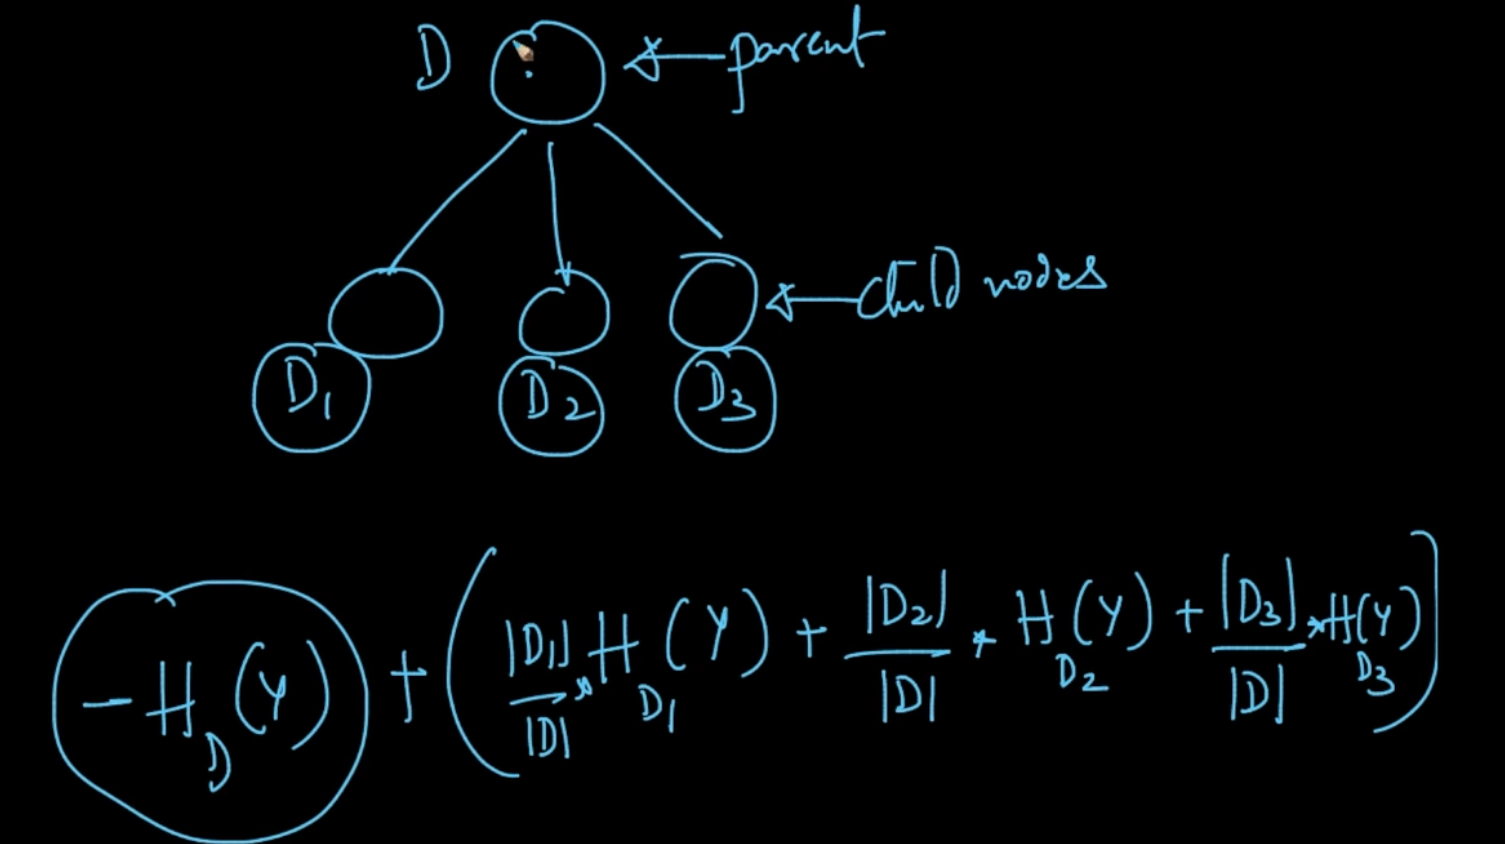 D parent
child nodes
D1 D2 D3
-H_D(Y) + ( |D1|/|D| * H_D1(Y) + |D2|/|D| * H_D2(Y) + |D3|/|D| * H_D3(Y) )